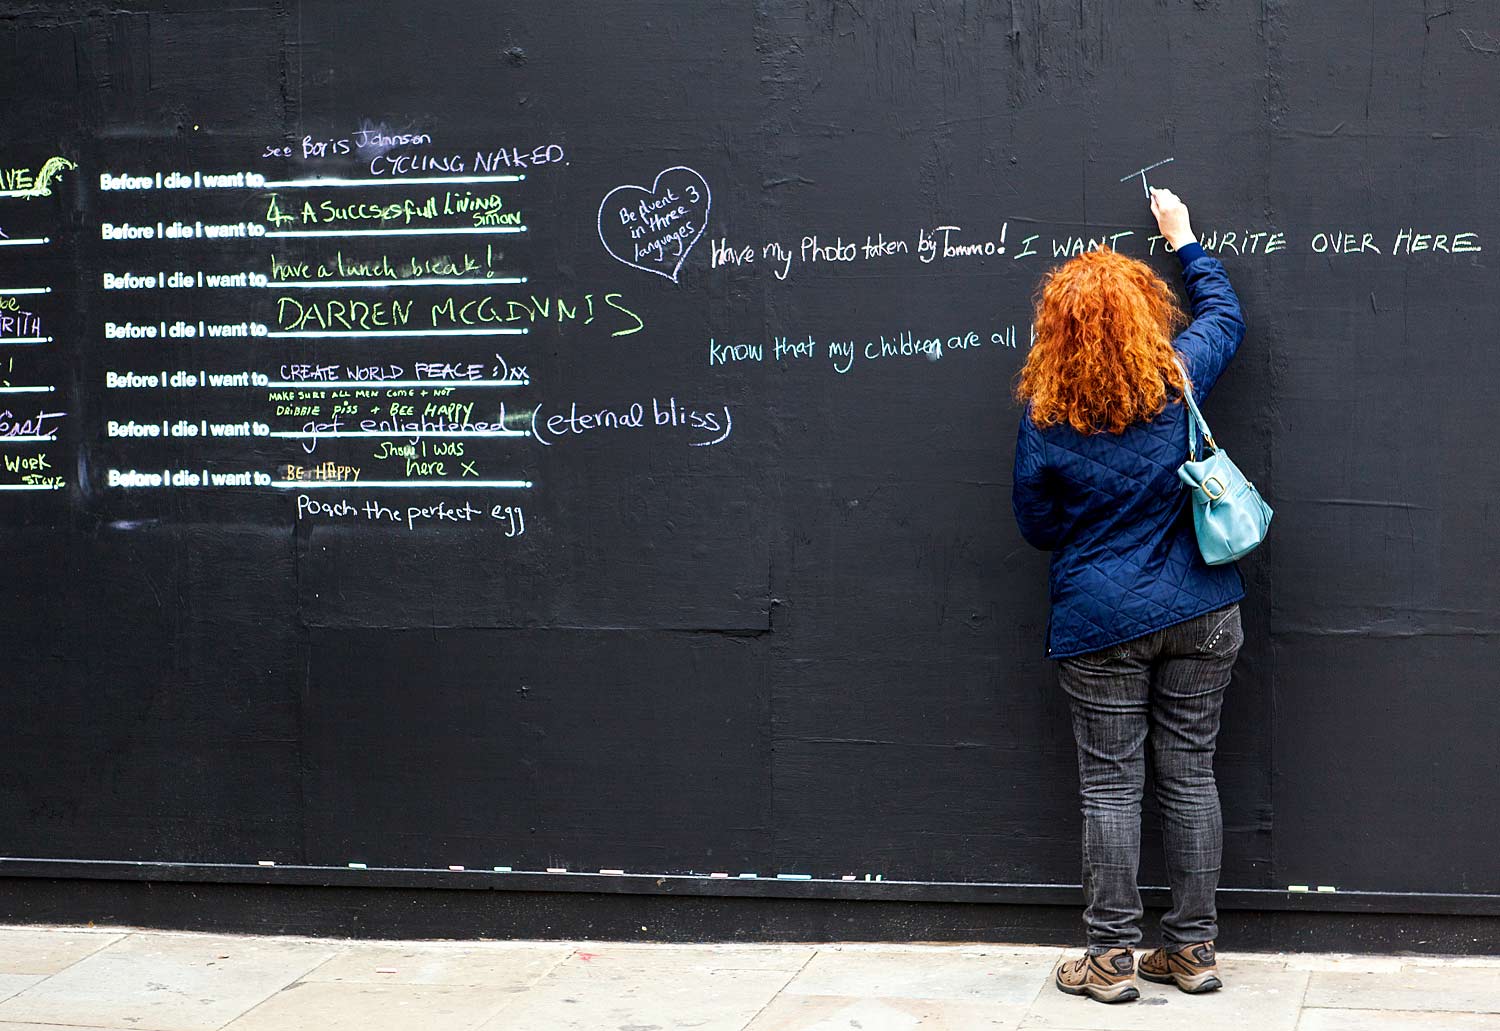 AVE
see Boris Johnson
CYCLING NAKED.
Before I die I want to
A Succsesfull LiViNG
SiMON
Before I die I want to
have a lunch break!
Before I die I want to
DARREN MCGINNIS
Before I die I want to
RITH
CREATE WORLD PEACE :) xx
Before I die I want to
MAKE SURE ALL MEN COME + NOT
DRIBBLE PISS + BEE HAPPY
get enlightened (eternal bliss)
Before I die I want to
East
Show I was
here X
BE HAPPY
Before I die I want to
WORK
STEVE
Poach the perfect egg
Be fluent
in three 3
languages
Have my Photo taken by Tommo! I WANT TO WRITE OVER HERE
know that my children are all
T